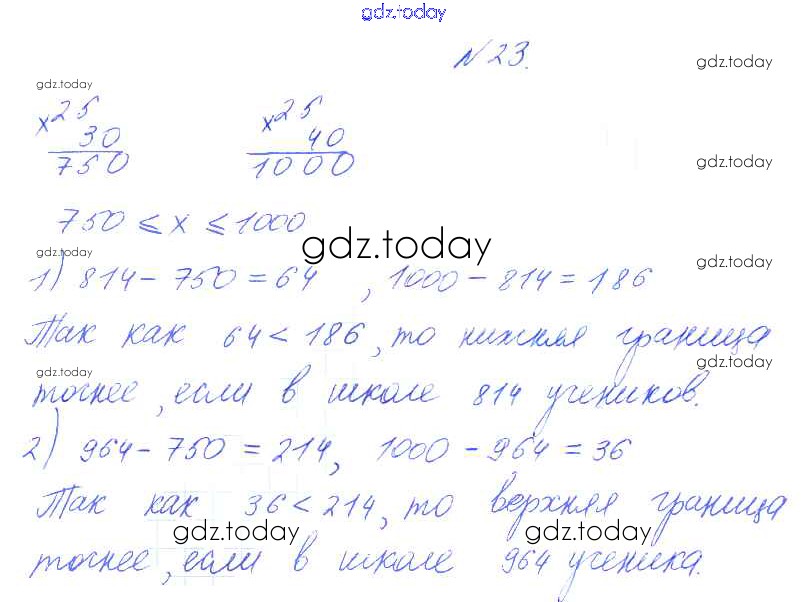 gdz.today
N 23.
gdz.today
gdz.today
× 25 × 25
30 40
750 1000
gdz.today
750 ⩽ x ⩽ 1000
gdz.today
gdz.today
gdz.today
1) 814 - 750 = 64 , 1000 - 814 = 186
Так как 64 < 186, то нижняя граница
gdz.today
gdz.today
точнее, если в школе 814 учеников.
2) 964 - 750 = 214, 1000 - 964 = 36
Так как 36 < 214, то верхняя граница
gdz.today gdz.today
точнее, если в школе 964 ученика.